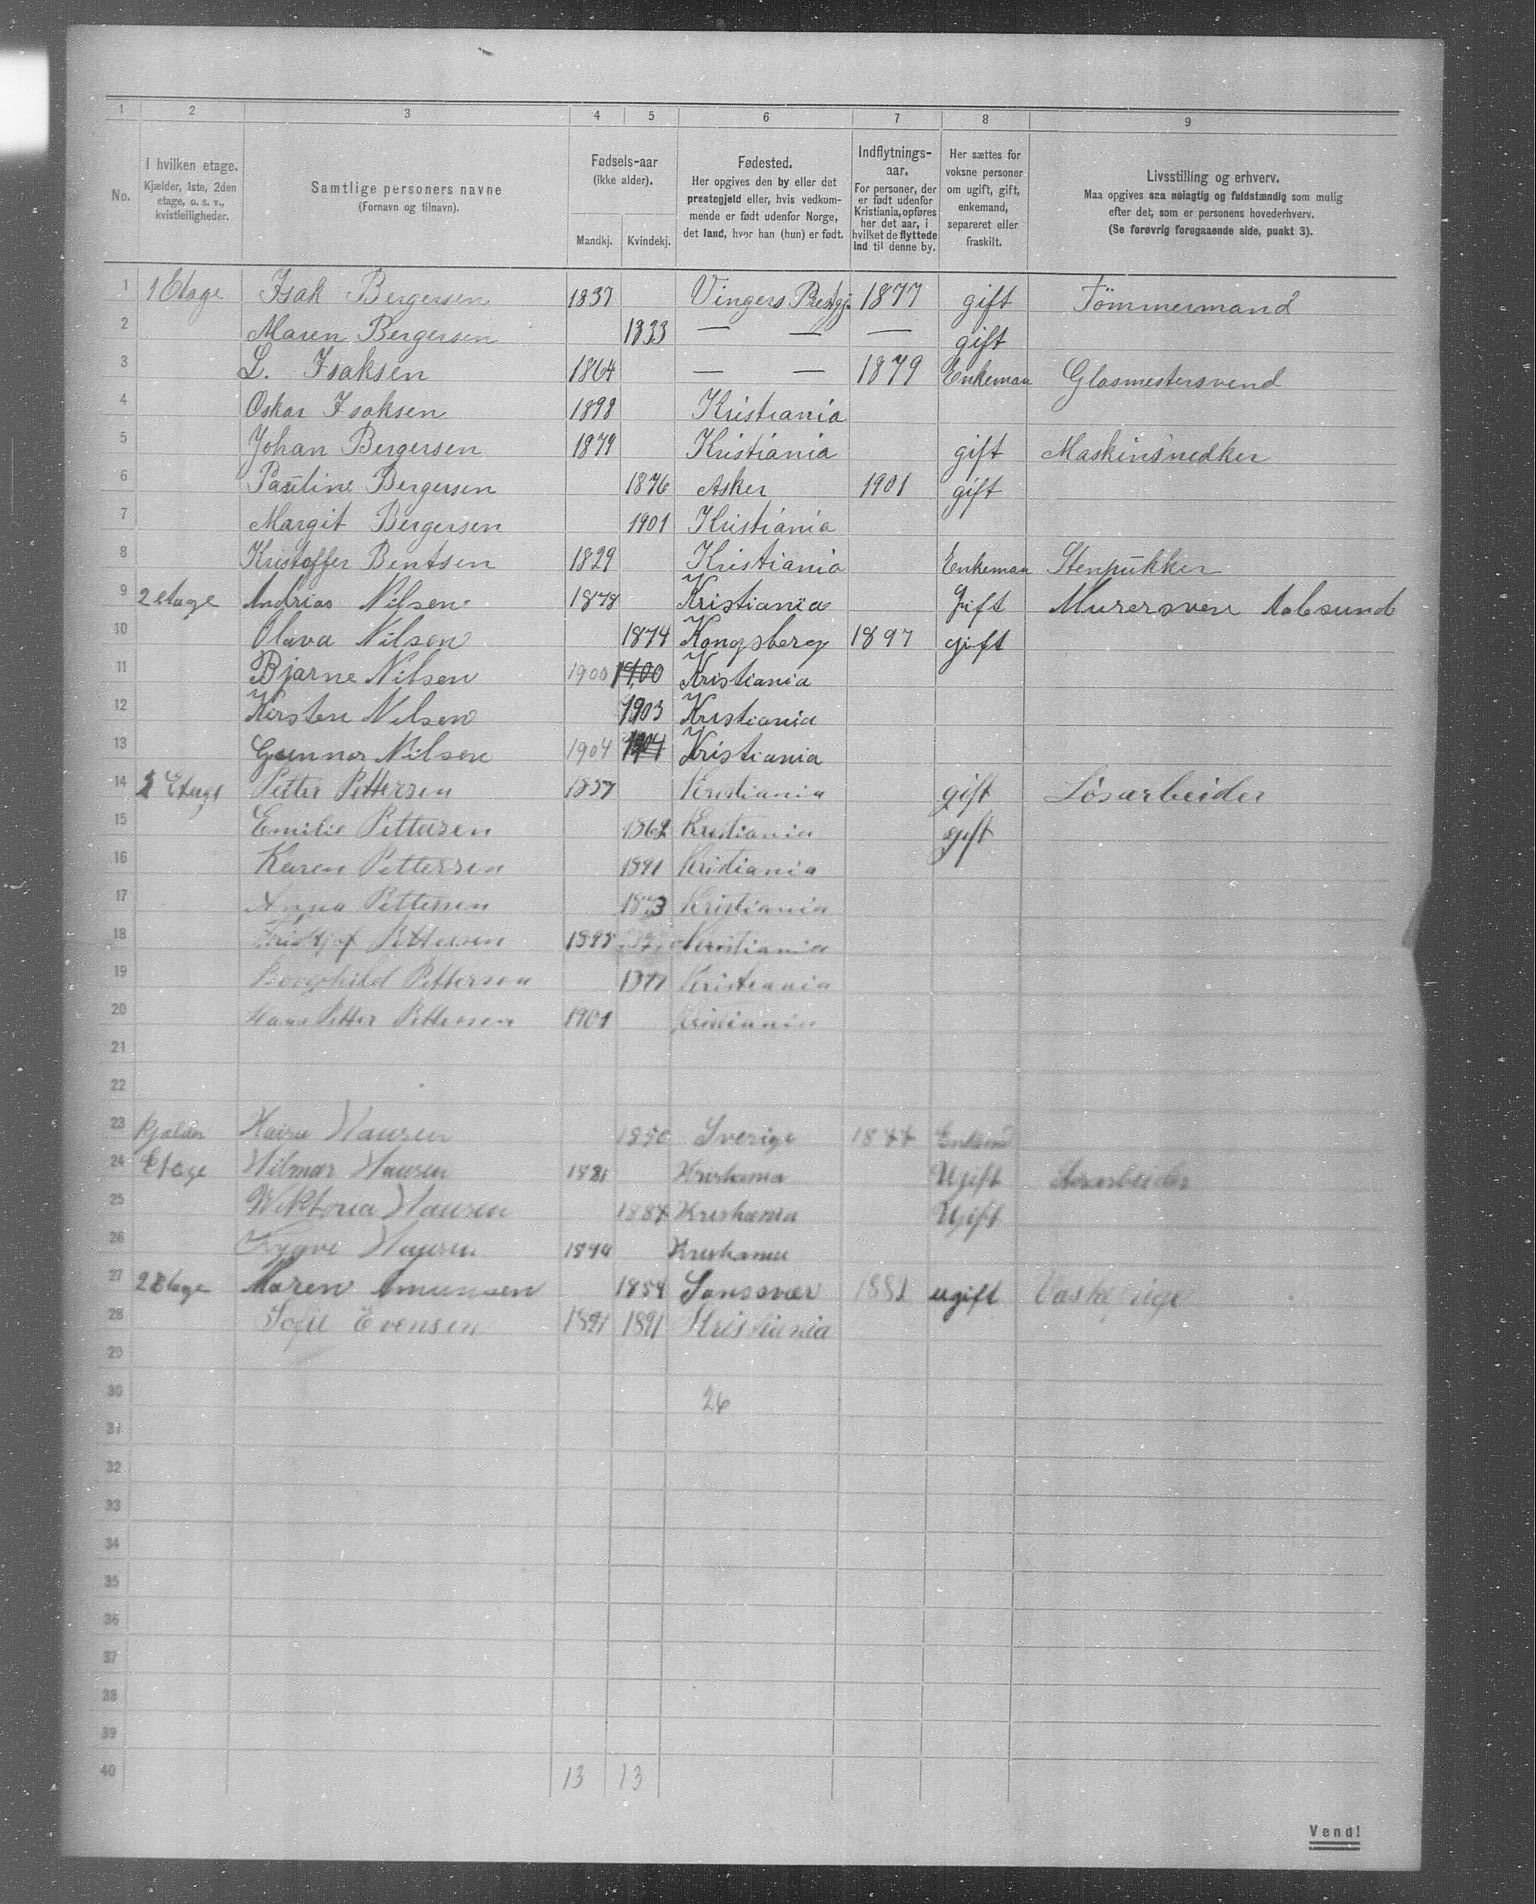 1 2 3 4 5 6 7 8 9
No.
I hvilken etage.
Kjælder, 1ste, 2den
etage, o. s. v.,
kvistleiligheder.
Samtlige personers navne
(Fornavn og tilnavn).
Fødsels-aar
(ikke alder).
Mandkj. Kvindekj.
Fødested.
Her opgives den by eller det
prestegjeld eller, hvis vedkom-
mende er født udenfor Norge,
det land, hvor han (hun) er født.
Indflytnings-
aar.
For personer, der
er født udenfor
Kristiania, opføres
her det aar, i
hvilket de flyttede
ind til denne by.
Her sættes for
voksne personer
om ugift, gift,
enkemand,
separeret eller
fraskilt.
Livsstilling og erhverv.
Maa opgives saa nøiagtig og fuldstændig som mulig
efter det, som er personens hovederhverv.
(Se forøvrig foregaaende side, punkt 3).
1 1 Etage Isak Bergersen 1837 Vingers Prestgj. 1877 gift Tömmermand
2 Maren Bergersen 1833 — — — gift
3 L. Isaksen 1864 — — 1879 Enkeman Glasmestersvend
4 Oskar Isaksen 1898 Kristiania
5 Johan Bergersen 1879 Kristiania gift Maskinsnedker
6 Pauline Bergersen 1876 Asker 1901 gift
7 Margit Bergersen 1901 Kristiania
8 Kristoffer Bentsen 1829 Kristiania Enkeman Stenpukker
9 2 etage Andrias Nilsen 1878 Kristiania Gift Murersven Aalesund
10 Olava Nilsen 1874 Kongsberg 1897 gift
11 Bjarne Nilsen 1900 1900 Kristiania
12 Kirsten Nilsen 1903 Kristiania
13 Gunnar Nilsen 1904 1904 Kristiania
14 Etage Petter Pettersen 1857 Kristiania gift Løsarbeider
15 Emilie Pettersen 1862 Kristiania gift
16 Karen Pettersen 1891 Kristiania
17 Anna Pettersen Kristiania
18 Fridtjof Pettersen Kristiania
19 Borghild Pettersen Kristiania
20 Hans Petter Pettersen 1901 Kristiania
21
22
23 Kjælder Hansen 1850 Sverige
24 Etage Hilmar Hansen 1881 Kristiania Ugift Løsarbeider
25 Wiktoria Hansen Kristiania Ugift
26 Trygve Hansen Kristiania
27 2 Etage Maren Amunsen Sansvær 1881 ugift
28 Sofie Evensen 1891 1891 Kristiania
29
30 26
31
32
33
34
35
36
37
38
39
40 13 13
Vend!